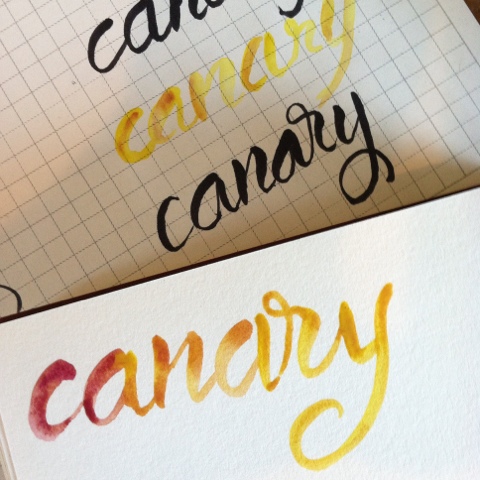 canary
canary
canary
canary